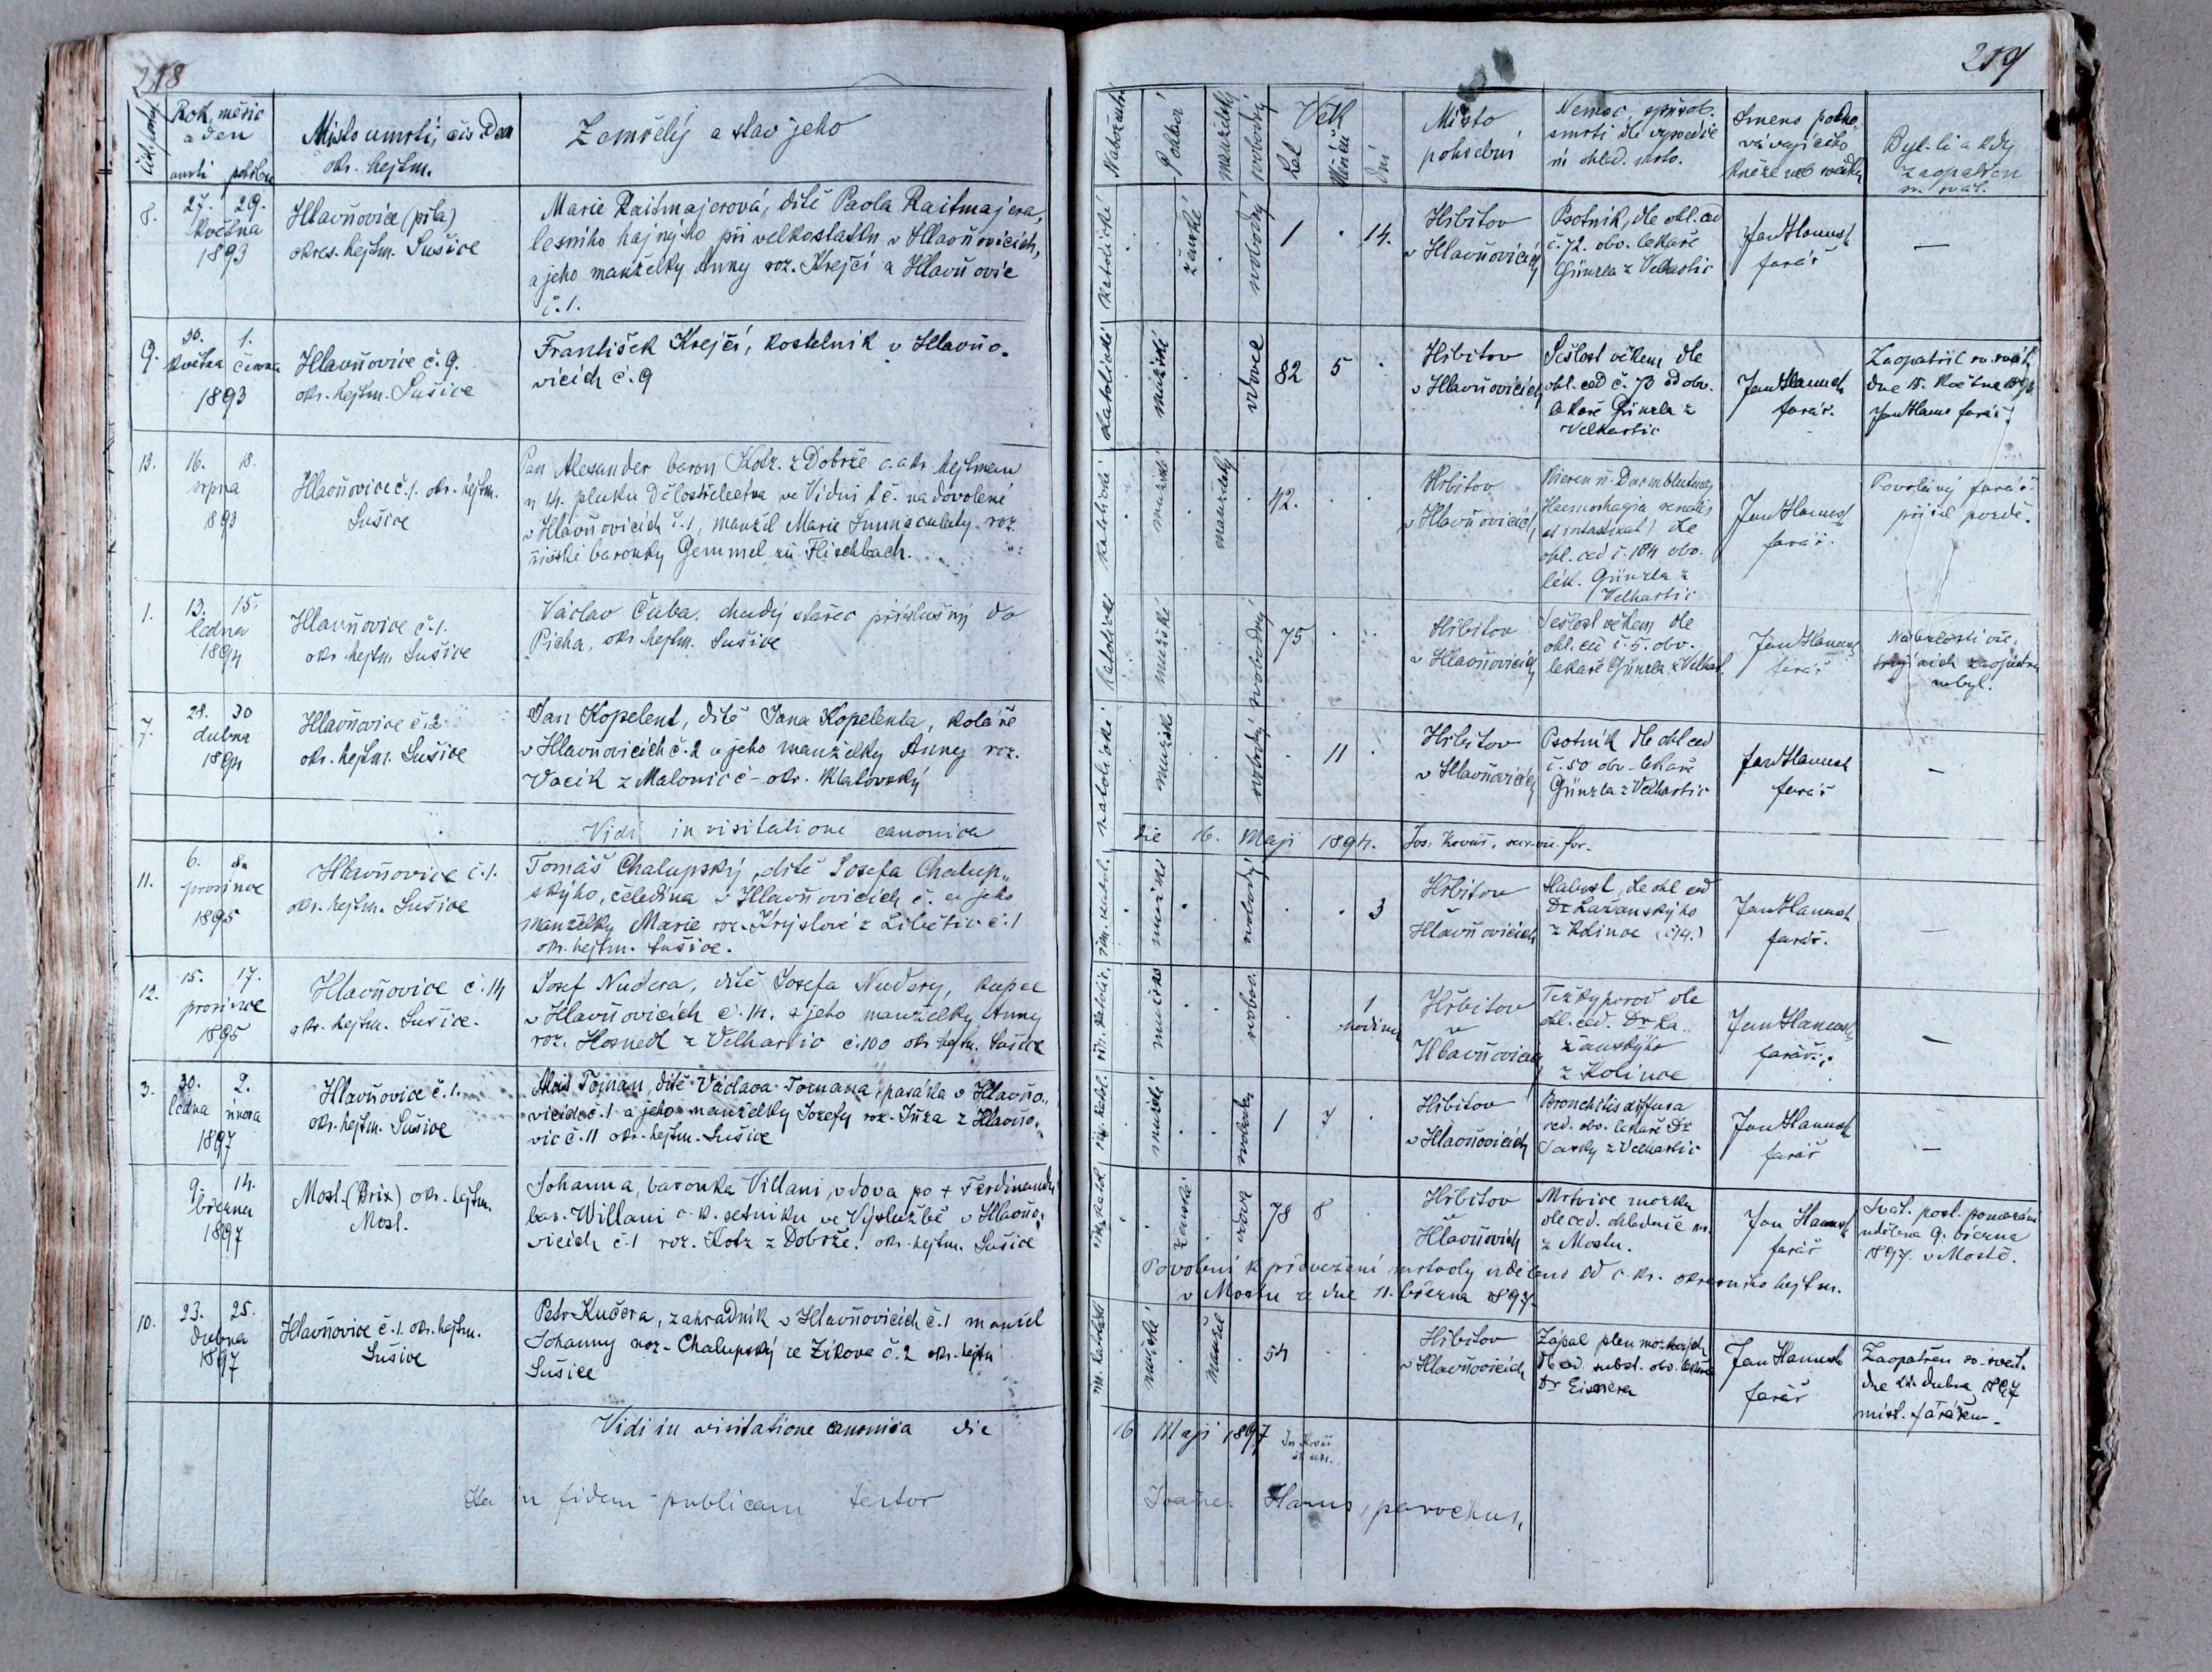 218
Rok, měsíc
a den
úmrtí pohřbu
Místo úmrtí, čís Dom
okr. hejtm.
Zemřelý a stav jeho
8.
27. 29.
května
1893
Hlavňovice (pila)
okres. hejtm. Sušice
Marie Raitmajerová, dítě Paola Raitmajera,
lesního hajného při velkostatku v Hlavňovicích,
a jeho manželky Anny roz. Krejčí z Hlavňovic
č. 1.
9.
30. 1.
května června
1893
Hlavňovice č. 9.
okr. hejtm. Sušice
František Krejčí, kostelník v Hlavňo-
vicích č. 9
13.
16. 18.
srpna
1893
Hlavňovice č. 1. okr. hejtm.
Sušice
Pan Alexander baron Kotz. z Dobrše c. a kr. hejtman
u 14. pluku Dělostřelectva ve Vídni t. č. na dovolené
v Hlavňovicích č. 1, manžel Marie Immaculaty roz.
baronky Gemmel zu Flischbach.
1.
13. 15.
ledna
1894
Hlavňovice č. 1.
okr. hejtm. Sušice
Václav Čuba, chudý stařec příslušný do
Picha, okr. hejtm. Sušice
7.
28. 30
dubna
1894
Hlavňovice č. 2
okr. hejtm. Sušice
Jan Kopelent, dítě Jana Kopelenta, koláře
v Hlavňovicích č. 2 a jeho manželky Anny roz.
Vacík z Malonic č - okr. Klatovský
Vidi in visitatione canonica
11.
6. 8.
prosince
1895
Hlavňovice č. 1.
okr. hejtm. Sušice
Tomáš Chalupský, dítě Josefa Chalup„
ského, čeledína v Hlavňovicích č. a jeho
manželky Marie roz. z Libětic č. 1
okr. hejtm. Sušice.
12.
15. 17.
prosince
1895
Hlavňovice č. 14
okr. hejtm. Sušice.
Josef Nudera, dítě Josefa Nudery, kupce
v Hlavňovicích č. 14. a jeho manželky Anny
roz. Hosnedl z Velhartic č. 100 okr. hejtm. Sušice
3.
30. 2.
ledna února
1897
Hlavňovice č. 1.
okr. hejtm. Sušice
Alois Toman, dítě Václava Tomana, pasáka v Hlavňo„
vicích č. 1 a jeho manželky Josefy roz. z Hlavňo„
vic č. 11 okr. hejtm. Sušice
9. 14.
března
1897
Most. (Brix) okr. hejtm.
Most.
Johanna, baronka Villani, vdova po + Ferdinandu
bar. Willani c. k. setníku ve Výslužbě v Hlavňo„
vicích č. 1 roz. Kotz z Dobrše. okr. hejtm. Sušice
10.
23. 25.
Dubna
1897
Hlavňovice č. 1. okr. hejtm.
Sušice
Petr Kučera, zahradník v Hlavňovicích č. 1 manžel
Johanny roz. Chalupský ze Žikova č. 2 okr. hejtm
Sušice
Vidi in visitatione canonica die
Ita in fidem publicam testor
219
Náboženství
Pohlaví
manželský
svobodný
Věk
Let
Měsíců
Dní
Místo
pohřbení
Nemoc, způsob
smrti dle vysvědče
ní ohled. místo.
Jméno pocho
vávajícího
kněze neb svědka
Byl-li a kdy
zaopatřen
sv. svát.
katolické
ženské
svobodný
1 . 14.
Hřbitov
v Hlavňovicích
Psotník, dle ohl. ced
č. 72. obv. lékaře
Günzla z Velhartic
Jan Hanuš
farář
—
katolické
mužské
vdovec
82 5 .
Hřbitov
v Hlavňovicích
Sešlost věkem dle
ohl. ced č. 73 od obv.
lékaře Günzla z
Velhartic
Jan Hanuš
farář.
Zaopatřil sv. svát.
dne 15. května 1893
Jan Hanus farář.
katolické
mužské
manželský
42.
Hřbitov
v Hlavňovicích
Nieren u. Darmblutung
Haemorrhagia renalis
et intestinal) dle
ohl. ced č. 104 obv.
lék. Günzla z
Velhartic
Jan Hanuš
farář.
Povolaný farář
přišel pozdě.
katolické
mužské
svobodný
75
Hřbitov
v Hlavňovicích
Sešlost věkem dle
ohl. ced č. 5. obv.
lékaře Günzla z Velhart.
Jan Hanuš
farář
zaopatřen
nebyl.
katolické
mužské
svobodný
11
Hřbitov
v Hlavňovicích
Psotník dle ohl ced
č. 50 obv. lékaře
Günzla z Velhartic
Jan Hanuš
farář
—
die 16. Maji 1894.
řím. katol.
mužské
svobodný
3
Hřbitov
Hlavňovicích
Slabost, dle ohl ced
Dr. Lažanského
z Kolince (č. 14.)
Jan Hanuš
farář.
—
řím. katolic.
mužské
svobod.
1
hodina
Hřbitov
v
Hlavňovicích
Těžký porod dle
ohl. ced. Dr. La„
žanského
z Kolince
Jan Hanuš
farář.
—
řím. katol.
mužské
svobodný
1
Hřbitov
v Hlavňovicích
Bronchitis diffusa
ced. obv. lékaře Dr
z Velhartic
Jan Hanuš
farář
—
řím. katol.
ženské
vdova
78 8
Hřbitov
v
Hlavňovicích
Mrtvice mozku
dle ced. ohledače
z Mostu.
Jan Hanuš
farář
Svát. posl. pomazání
uděleno 9. března
1897. v Mostě.
Povolení k převezení mrtvoly uděleno od c. kr. okresního hejtm.
v Mostu ze dne 11. března 1897.
řím. katolické
mužské
manžel
54
Hřbitov
v Hlavňovicích
Zápal plen mozkových
dle ced. subst. obv. lékaře
Dr Eisnera
Jan Hanuš
farář
Zaopatřen sv. svát.
dne 22. dubna 1897
míst. farářem.
16 Maji 1897
Hanus, parochus,